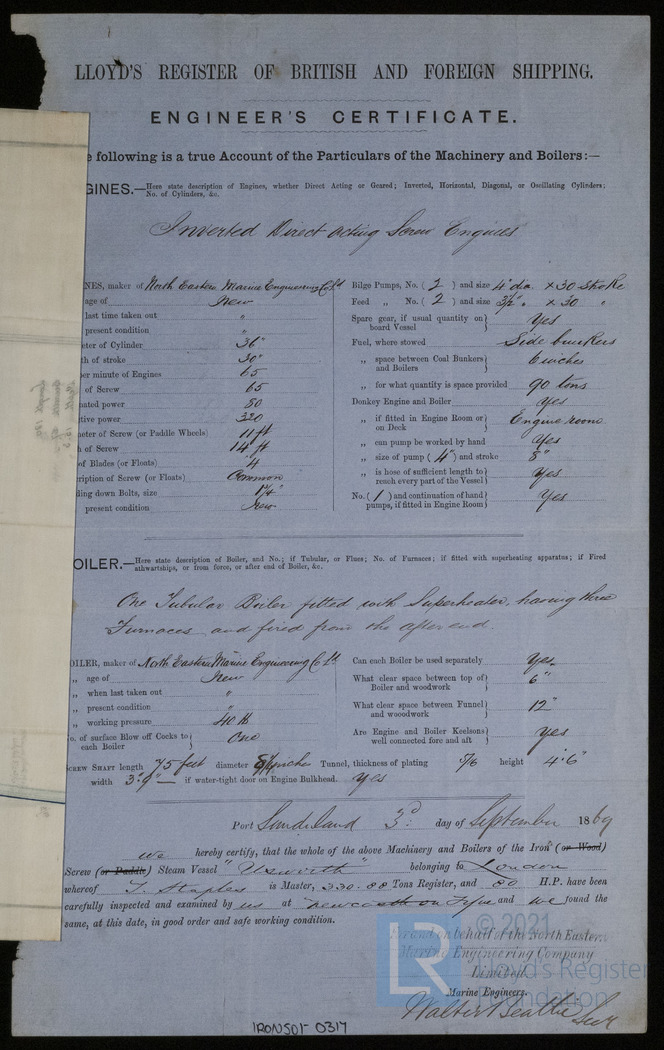 LLOYD'S REGISTER OF BRITISH AND FOREIGN SHIPPING.
ENGINEER'S CERTIFICATE.
e following is a true Account of the Particulars of the Machinery and Boilers:—
GINES.—Here state description of Engines, whether Direct Acting or Geared; Inverted, Horizontal, Diagonal, or Oscillating Cylinders;
No. of Cylinders, &c.
Inverted Direct acting Screw Engines
NES, maker of North Eastern Marine Engineering Co Ld
age of New
last time taken out "
present condition "
eter of Cylinder 36"
th of stroke 30"
per minute of Engines 65
of Screw 65
nated power 80
tive power 320
meter of Screw (or Paddle Wheels) 11 ft
h of Screw 14 ft
of Blades (or Floats) 4
cription of Screw (or Floats) Common
ding down Bolts, size 1¼"
present condition New
Bilge Pumps, No. ( 2 ) and size 4" dia × 30 Stroke
Feed „ No. ( 2 ) and size 3½" „ × 30 "
Spare gear, if usual quantity on
board Vessel } Yes
Fuel, where stowed Side bunkers
„ space between Coal Bunkers
and Boilers } 6 inches
„ for what quantity is space provided 90 tons
Donkey Engine and Boiler Yes
„ if fitted in Engine Room or
on Deck } Engine room
„ can pump be worked by hand Yes
„ size of pump ( 4" ) and stroke 8"
„ is hose of sufficient length to
reach every part of the Vessel } Yes
No. ( 1 ) and continuation of hand
pumps, if fitted in Engine Room } Yes
OILER.—Here state description of Boiler, and No.; if Tubular, or Flues; No. of Furnaces; if fitted with superheating apparatus; if Fired
athwartships, or from force, or after end of Boiler, &c.
One Tubular Boiler fitted with Superheater, having three
Furnaces and fired from the after end.
OILER, maker of North Eastern Marine Engineering Co Ld
„ age of New
„ when last taken out "
„ present condition "
„ working pressure 40 lb
o. of surface Blow off Cocks to
each Boiler } One
Can each Boiler be used separately Yes
What clear space between top of
Boiler and woodwork } 6"
What clear space between Funnel
and woodwork } 12"
Are Engine and Boiler Keelsons
well connected fore and aft } Yes
SCREW SHAFT length 75 feet diameter inches Tunnel, thickness of plating 5/16 height 4'.6"
width 3'.9" — if water-tight door on Engine Bulkhead. Yes
Port Sunderland 3d. day of September 1869
We hereby certify, that the whole of the above Machinery and Boilers of the Iron (or Wood)
Screw (or Paddle) Steam Vessel "Usworth" belonging to London
whereof T. Staples is Master, 330.88 Tons Register, and 80 H.P. have been
carefully inspected and examined by us at Newcastle on Tyne and we found the
same, at this date, in good order and safe working condition.
For and on behalf of the North Eastern
Marine Engineering Company
Limited.
Marine Engineers.
Walter Beattie Sec
© 2021
LR
Lloyd's Register
Foundation
IRONS01-0317